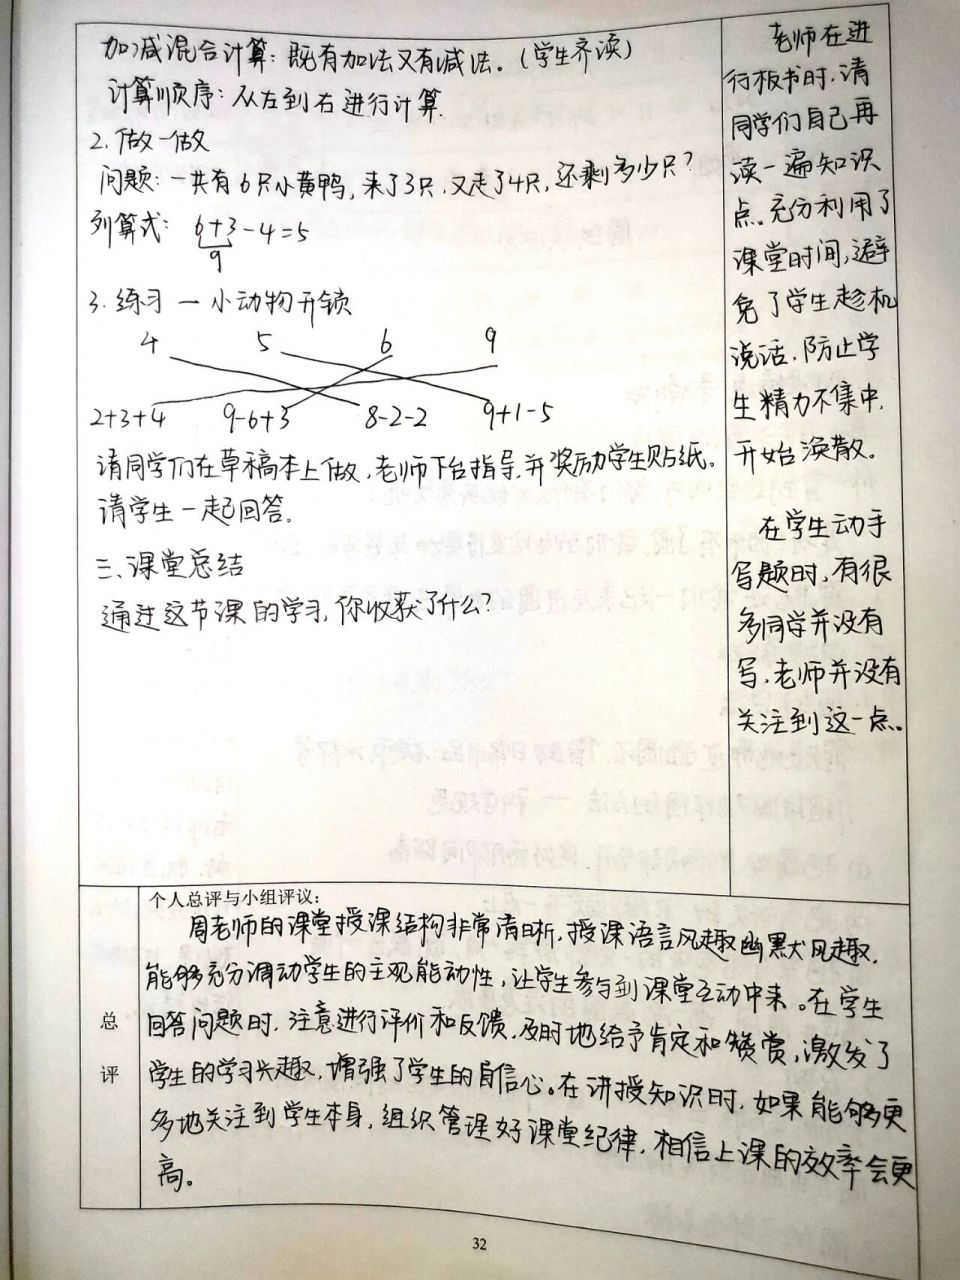 加减混合计算：既有加法又有减法。（学生齐读）
计算顺序：从左到右进行计算.
2.做一做
问题：一共有6只小黄鸭，来了3只，又走了4只，还剩多少只？
列算式：6+3-4=5
9
3.练习 — 小动物开锁
4 5 6 9
2+3+4 9-6+3 8-2-2 9+1-5
请同学们在草稿本上做，老师下台指导.并奖励学生贴纸。
请学生一起回答。
三、课堂总结
通过这节课的学习，你收获了什么？
老师在进
行板书时，请
同学们自己再
读一遍知识
点。充分利用了
课堂时间，避
免了学生趁机
说话，防止学
生精力不集中，
开始涣散。
在学生动手
写题时，有很
多同学并没有
写，老师并没有
关注到这一点。
总
评
个人总评与小组评议：
周老师的课堂授课结构非常清晰，授课语言风趣幽默风趣，
能够充分调动学生的主观能动性，让学生参与到课堂互动中来。在学生
回答问题时，注意进行评价和反馈，及时地给予肯定和赞赏，激发了
学生的学习兴趣，增强了学生的自信心。在讲授知识时，如果能够更
多地关注到学生本身，组织管理好课堂纪律，相信上课的效率会更
高。
32